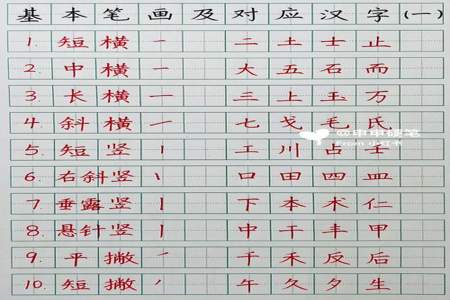 基本笔画及对应汉字(一)
1. 短横 一 二 土 士 止
2. 中横 一 大 五 石 而
3. 长横 一 三 上 玉 万
4. 斜横 一 七 戈 毛 氏
5. 短竖 丨 工 川 占 士
6. 右斜竖 丨 口 田 四 皿
7. 垂露竖 丨 下 本 术 仁
8. 悬针竖 丨 中 千 丰 甲
9. 平撇 丿 千 禾 反 后
10. 短撇 丿 午 久 夕 生